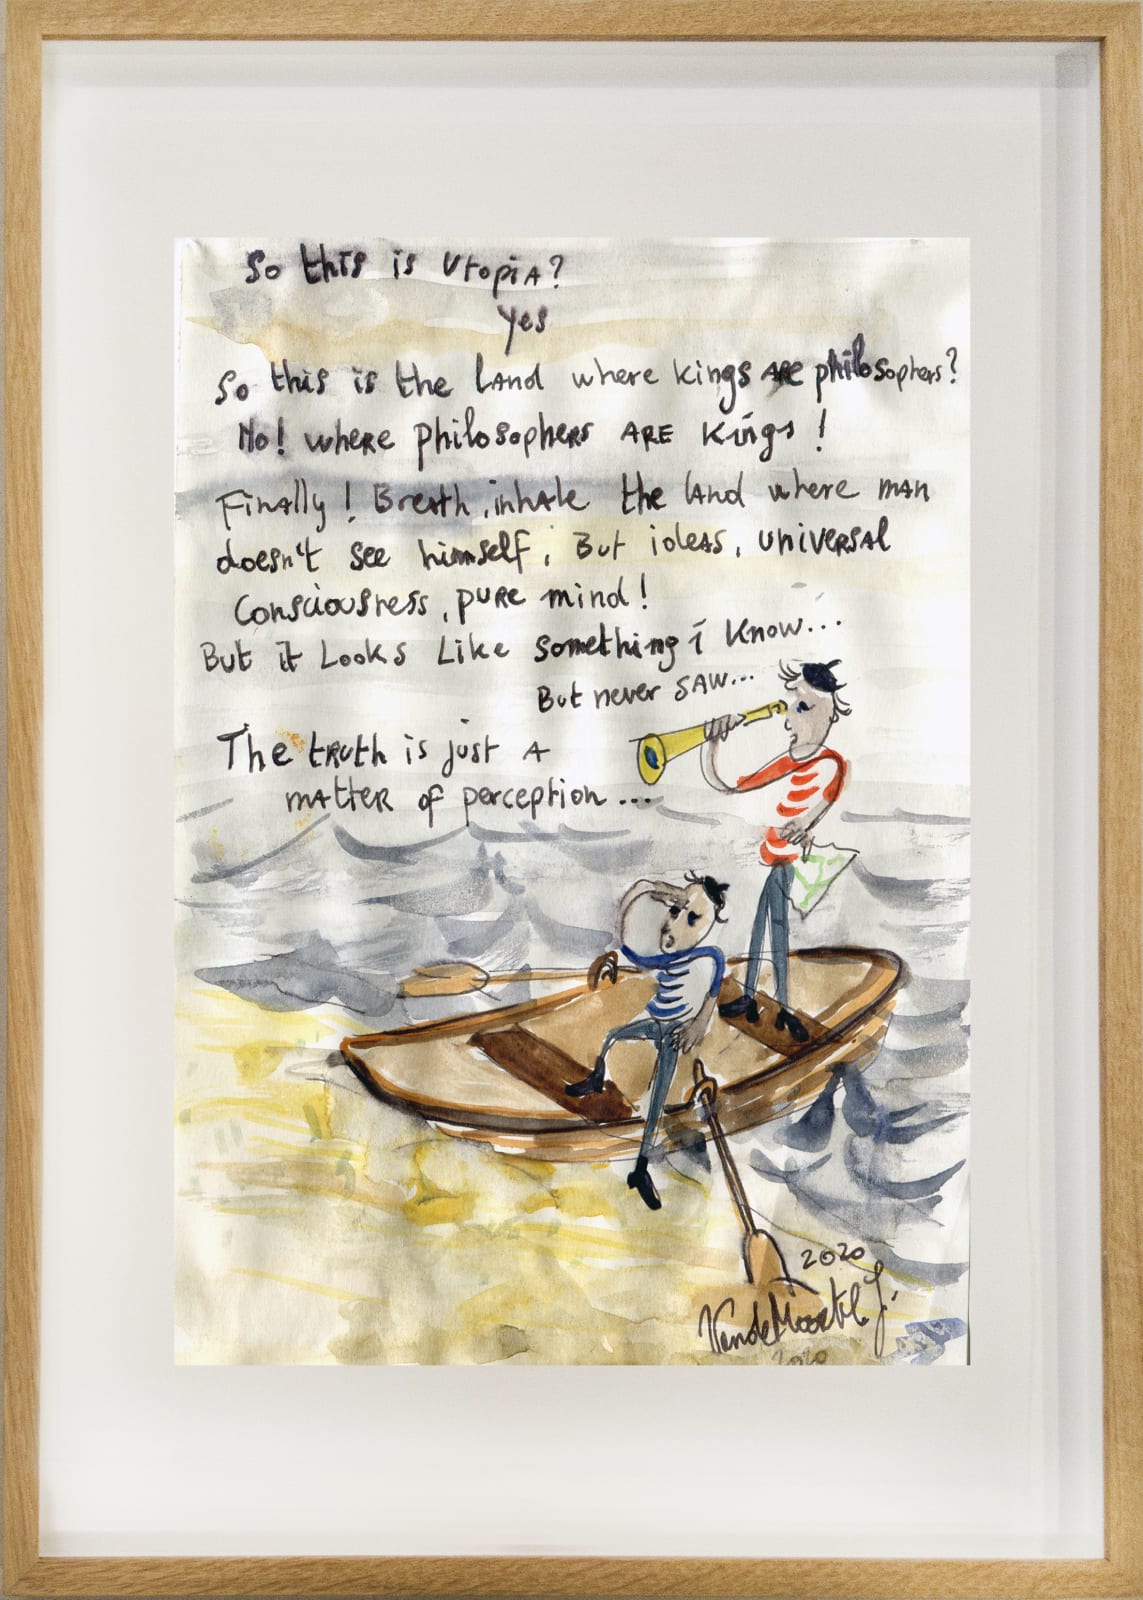 So this is Utopia?
Yes
So this is the land where kings are philosophers?
No! where philosophers are kings!
Finally! Breath, inhale the land where man
doesn't see himself, But ideas, universal
Consciousness, pure mind!
But it Looks Like something i know...
But never saw...
The truth is just a
matter of perception...
2020
VandeMoortel J.
2020